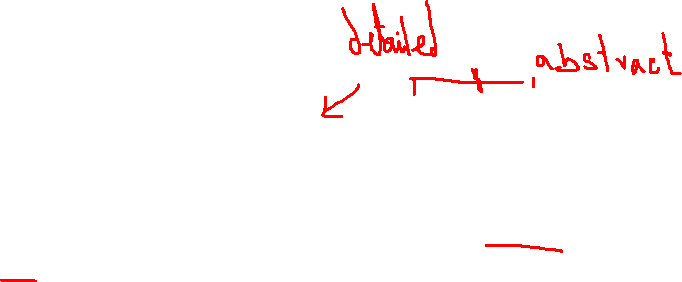 detailed
abstract